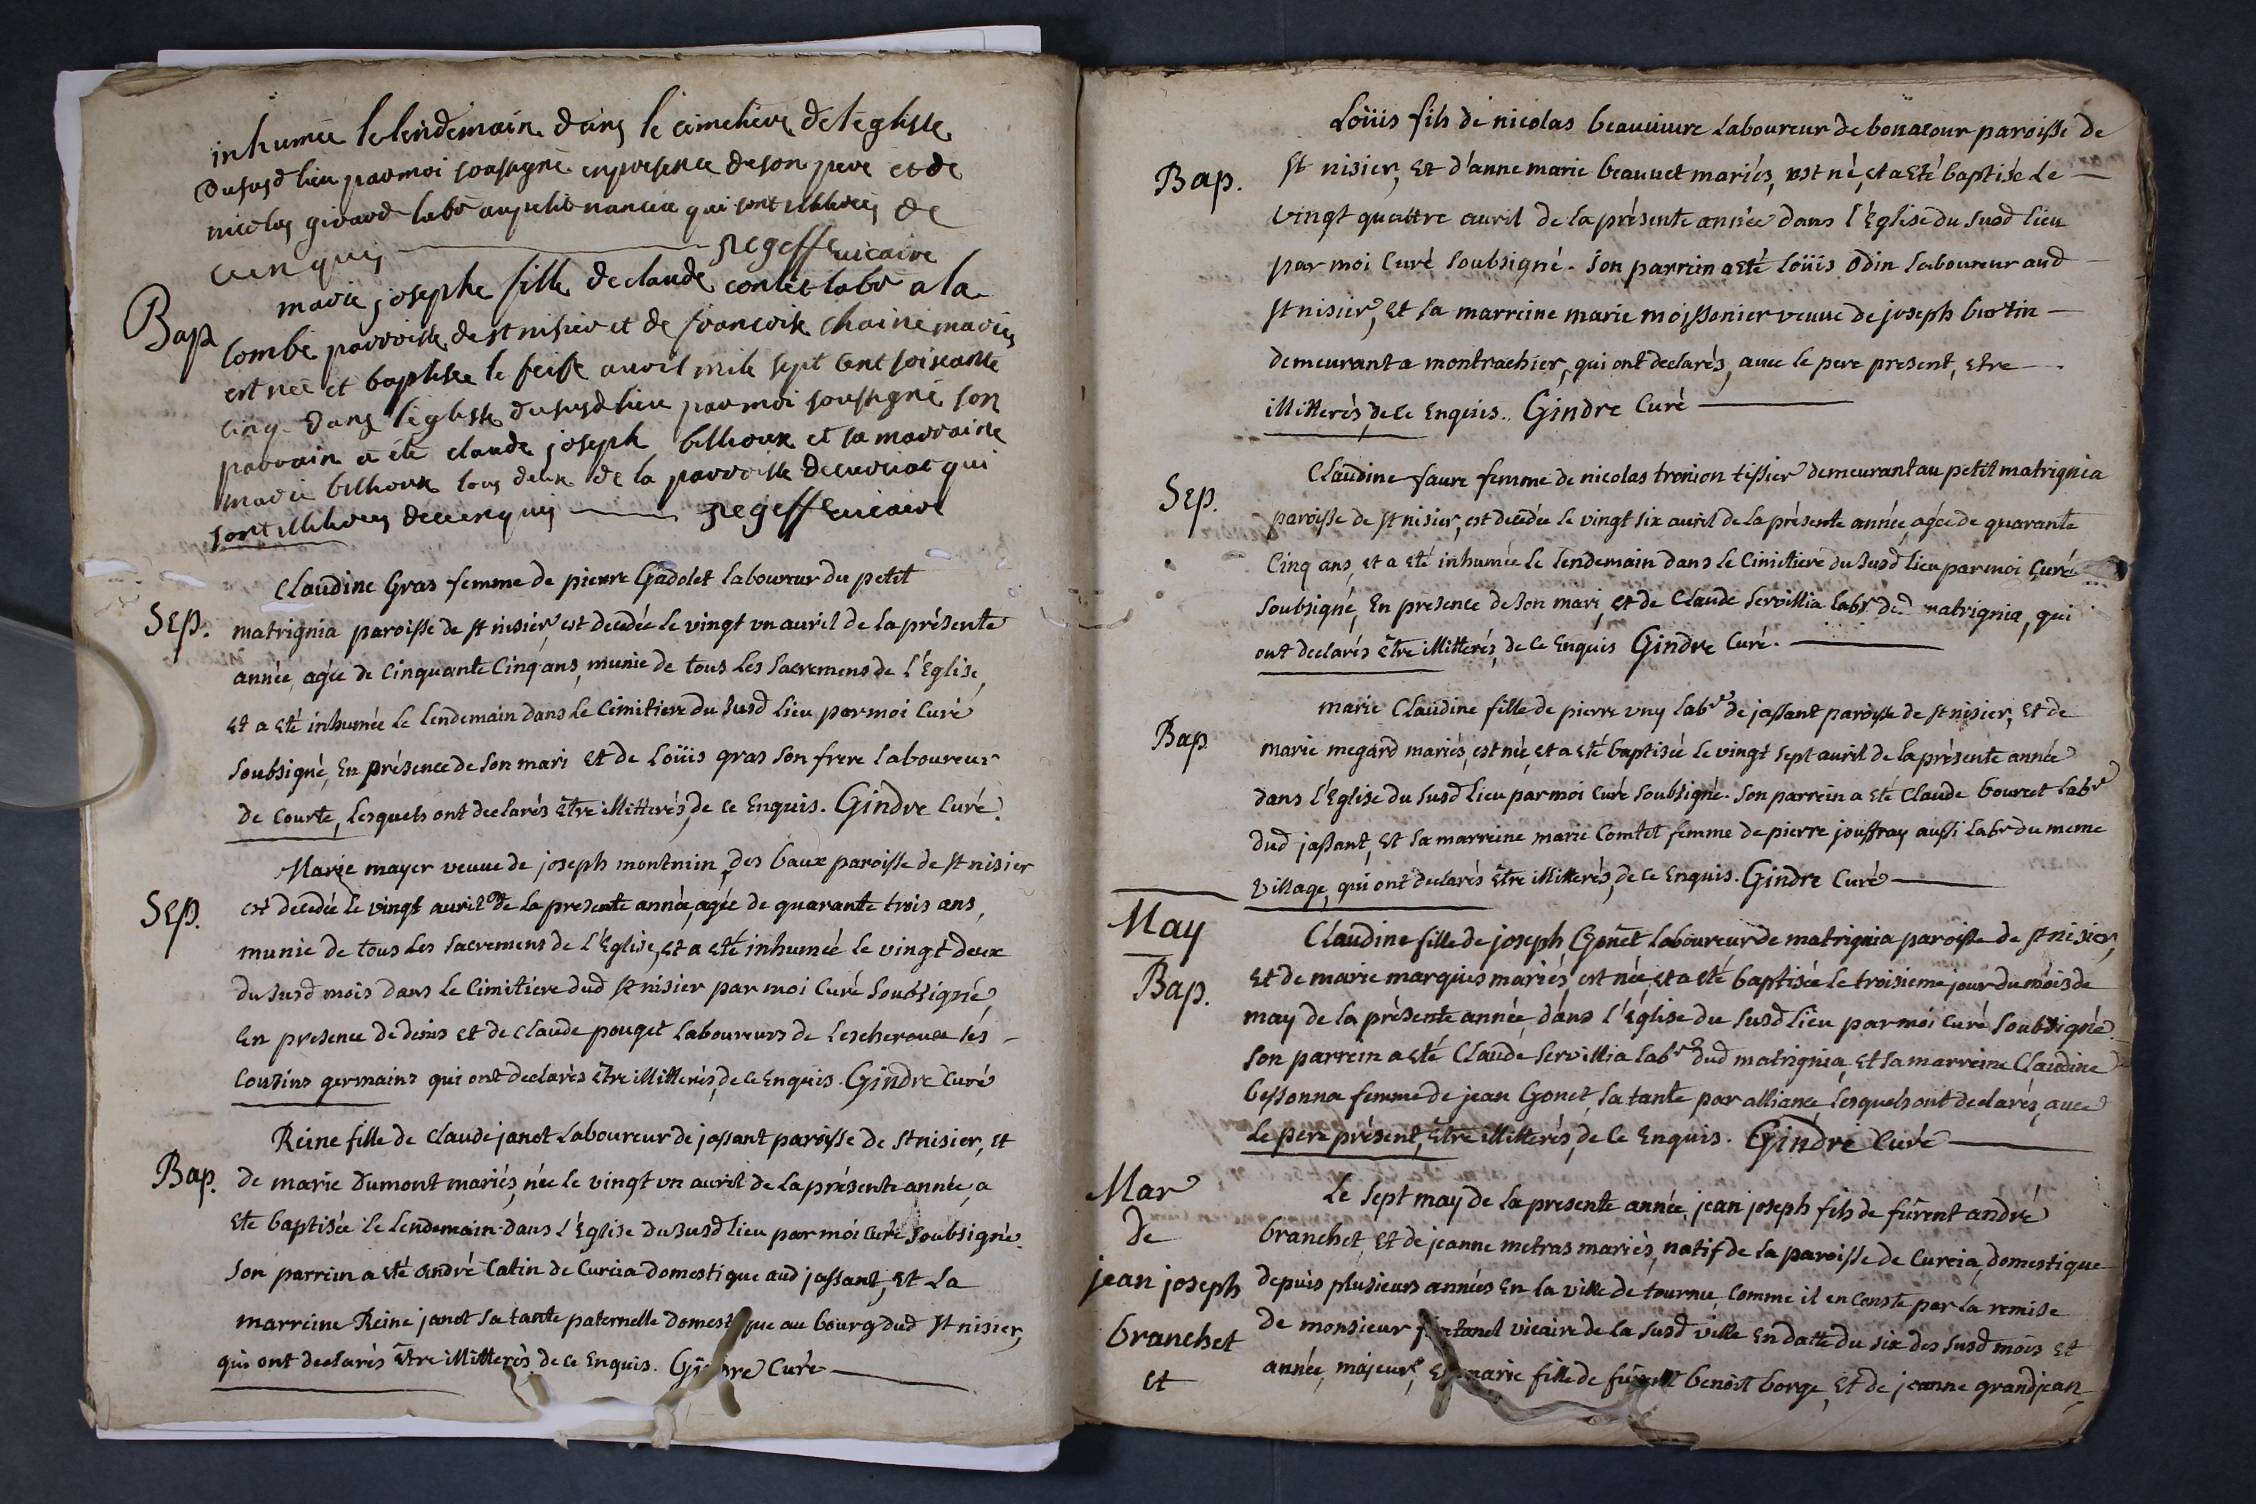 inhumée le lendemain dans le cimetiere de l'eglisse
dususd lieu parmoi soussigné enpresence deson pere et de
nicolas girard labr au petit nancia qui sont illiterés de
ce enquis ——— regeffe vicaire
Bap
marie josephe fille de claude contet labr a la
combe parroisse de st nisier et de francoise chaine mariés
est née et baptisée le seise avril mile sept cent soisante
cinq dans l'eglisse dususd lieu par moi soussigné son
parrain a été claude joseph bilhoux et sa marraine
marie bilhoux tous deux de la parroisse de curciat qui
sont illiterés de ce enquis ——— regeffe vicaire
Claudine Gras femme de pierre Gadolet laboureur du petit
Sep.
matrignia paroisse de st nisier est decedée le vingt un avril de la présente
année, agée de Cinquante Cinq ans, munie de tous les Sacremens de l'Eglise,
Et a Eté inhumée le lendemain dans le Cimitiere du Susd lieu par moi Curé
Soubsigné, En présence de Son mari Et de Loüis gras Son frere laboureur
de Courte, lesquels ont declarés Etre illitterés, de ce Enquis. Gindre Curé.
Marie mayer veuve de joseph montmin des baux paroisse de St nisier
Sep.
est decedée le vingt avril de la presente année, agée de quarante trois ans,
munie de tous les Sacremens de l'Eglise, Et a Eté inhumée le vingt deux
du Susd mois dans le Cimitiere dud St nisier par moi Curé Soubsigné,
En presence de denis et de Claude pouget laboureurs de Lescheroux ses
Cousins germains qui ont declarés Etre illitterés, de ce Enquis. Gindre Curé
Reine fille de Claude janot laboureur de jassant paroisse de St nisier, Et
Bap.
de marie Dumont mariés, née le vingt un avril de la présente année, a
Eté baptisée le lendemain dans l'Eglise du Susd lieu par moi Curé Soubsigné.
Son parrein a Eté André Catin de Curcia domestique aud jassant, Et La
marreine Reine janot Sa tante paternelle domestique au bourg dud St nisier,
qui ont declarés Etre illitterés de ce Enquis. Gindre Curé
Loüis fils de nicolas beauvivre Laboureur de bonacour paroisse de
Bap.
St nisier, Et d'anne marie beauvet mariés, est né, et a Eté baptisée Le
vingt quattre avril de la présente année dans l'Eglise du Susd lieu
par moi Curé Soubsigné. Son parrein a Eté Loüis Odin Laboureur aud
St nisier, Et Sa marreine marie moissonier veuve de joseph bertin
demeurant a montrachier, qui ont declarés, avec le pere present, Etre
illitterés, de ce Enquis. Gindre Curé
Claudine faure femme de nicolas tronion tissier demeurant au petit matrignia
Sep.
paroisse de St nisier, est decedée le vingt six avril de la présente année, agée de quarante
Cinq ans, et a Eté inhumée le lendemain dans le Cimitiere du Susd lieu par moi Curé
Soubsigné, En presence de Son mari, Et de Claude Servillia labr ded matrignia, qui
ont declarés Etre illitterés, de ce Enquis Gindre Curé.
marie Claudine fille de pierre vuy labr de jassant paroisse de St nisier, Et de
Bap
marie megard mariés, est née, et a Eté baptisée le vingt Sept avril de la présente année
dans l'Eglise du Susd lieu par moi Curé Soubsigné. Son parrein a Eté Claude bouvet labr
dud jassant, Et Sa marreine marie Comtet femme de pierre jouffray aussi labr du meme
village, qui ont declarés Etre illitterés, de ce Enquis. Gindre Curé
May
Claudine fille de joseph Gonet Laboureur de matrignia paroisse de St nisier,
Bap.
Et de marie marquis mariés, est née, et a Eté baptisée le troisieme jour du mois de
may de la présente année, dans l'Eglise du Susd lieu par moi Curé Soubsigné.
Son parrein a Eté Claude Servillia labr dud matrignia, Et Sa marreine Claudine
bessonna femme de jean Gonet, Sa tante par alliance, lesquels ont declarés, avec
le pere présent, Etre illitterés, de ce Enquis. Gindre Curé
Mar
de
jean joseph
branchet
et
Le Sept may de la presente année, jean joseph fils de fûrent andré
branchet, Et de jeanne metras mariés, natif de la paroisse de Curcia, domestique
depuis plusieurs années En la ville de tournu, Comme il en Conste par la remise
de monsieur vicaire de la Susd ville En datte du six des Susd mois Et
année, majeur, Et marie fille de fûrent benoît borge, Et de jeanne grandjean,